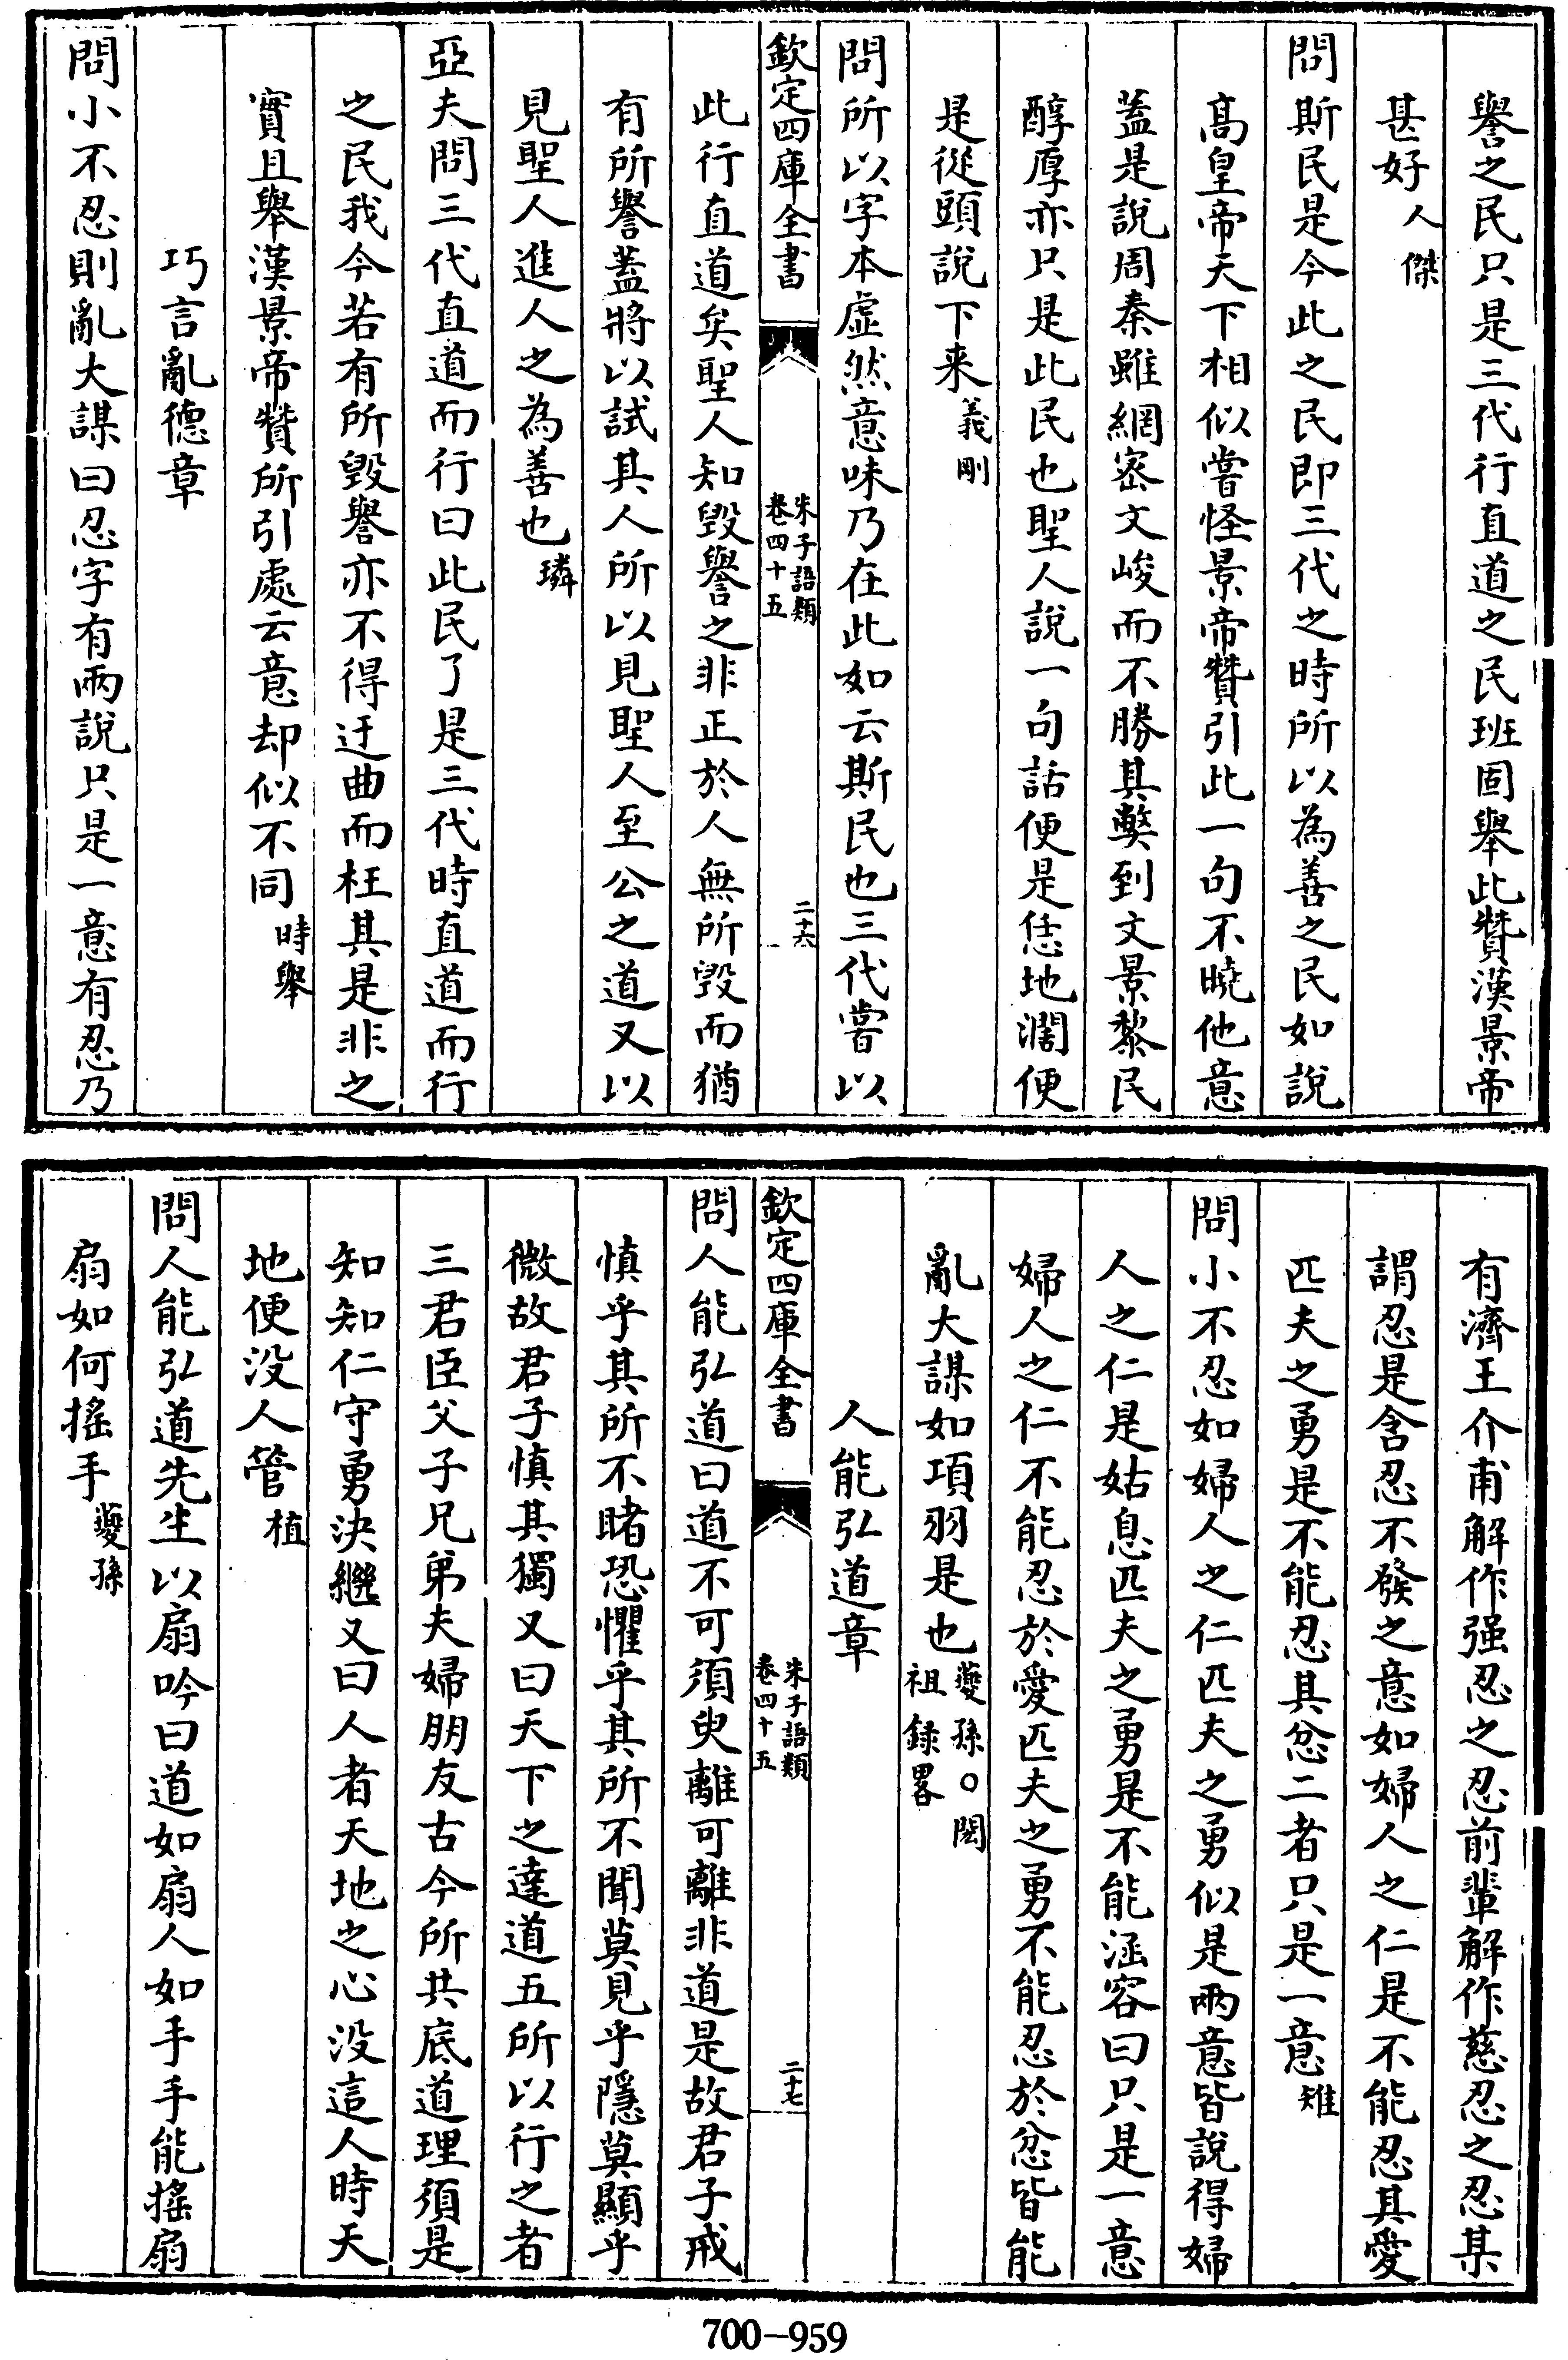 譽之民只是三代行直道之民班固舉此贊漢景帝
甚好人傑
問斯民是今此之民即三代之時所以為善之民如說
髙皇帝天下相似嘗怪景帝贊引此一句不曉他意
蓋是說周秦雖網宻文峻而不勝其弊到文景黎民
醇厚亦只是此民也聖人說一句話便是恁地濶便
是從頭說下来義剛
問所以字本虚然意味乃在此如云斯民也三代嘗以
欽定四庫全書
朱子語類
卷四十五
二十六
此行直道矣聖人知毁譽之非正於人無所毁而猶
有所譽蓋將以試其人所以見聖人至公之道又以
見聖人進人之為善也璘
亞夫問三代直道而行曰此民了是三代時直道而行
之民我今若有所毁譽亦不得迂曲而枉其是非之
實且舉漢景帝贊所引處云意却似不同時舉
巧言亂德章
問小不忍則亂大謀曰忍字有兩說只是一意有忍乃
有濟王介甫解作强忍之忍前輩解作慈忍之忍某
謂忍是含忍不發之意如婦人之仁是不能忍其愛
匹夫之勇是不能忍其忿二者只是一意雉
問小不忍如婦人之仁匹夫之勇似是兩意皆說得婦
人之仁是姑息匹夫之勇是不能涵容曰只是一意
婦人之仁不能忍於愛匹夫之勇不能忍於忿皆能
亂大謀如項羽是也夔孫○閎祖録畧
人能弘道章
欽定四庫全書
朱子語類
卷四十五
二十七
問人能弘道曰道不可須臾離可離非道是故君子戒
慎乎其所不睹恐懼乎其所不聞莫見乎隱莫顯乎
微故君子慎其獨又曰天下之達道五所以行之者
三君臣父子兄弟夫婦朋友古今所共底道理須是
知知仁守勇決繼又曰人者天地之心没這人時天
地便没人管植
問人能弘道先生以扇吟曰道如扇人如手手能搖扇
扇如何搖手夔孫
700-959